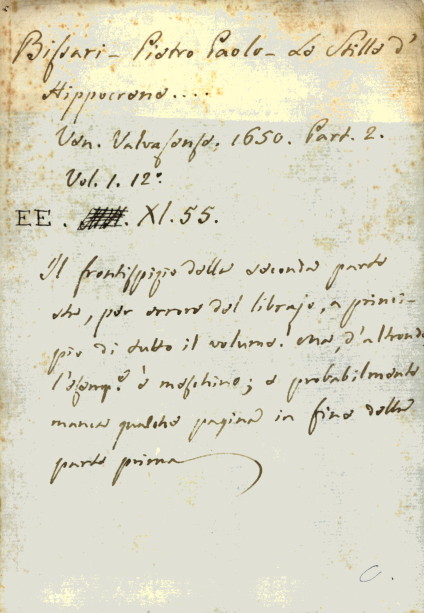 Bissari - Pietro Paolo - Le Stille d'
Hippocrene....
Ven. Valvasense. 1650. Part. 2.
Vol. 1. 12°.
EE. XI. 55.
Il frontispizio della seconda parte
sta, per errore del librajo, a princi-
pio di tutto il volume. Ma, d'altronde
l'esemp.e è meschino; e probabilmente
manca qualche pagina in fine della
parte prima
C.